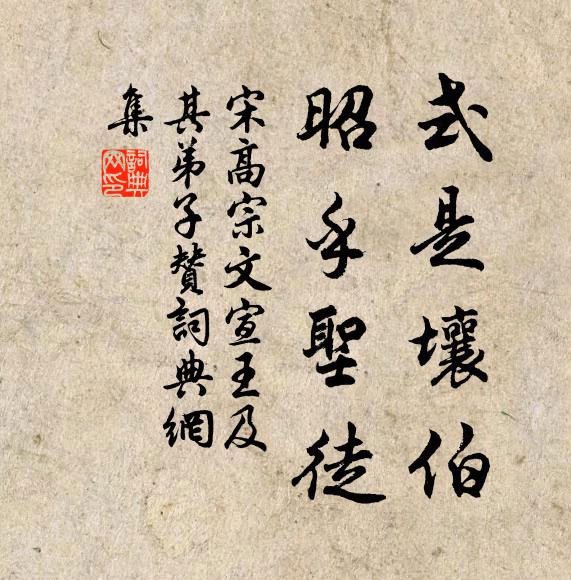 式是壤伯
昭乎聖徒
宋高宗文宣王及
其弟子贊詞典網
集
詞典網印